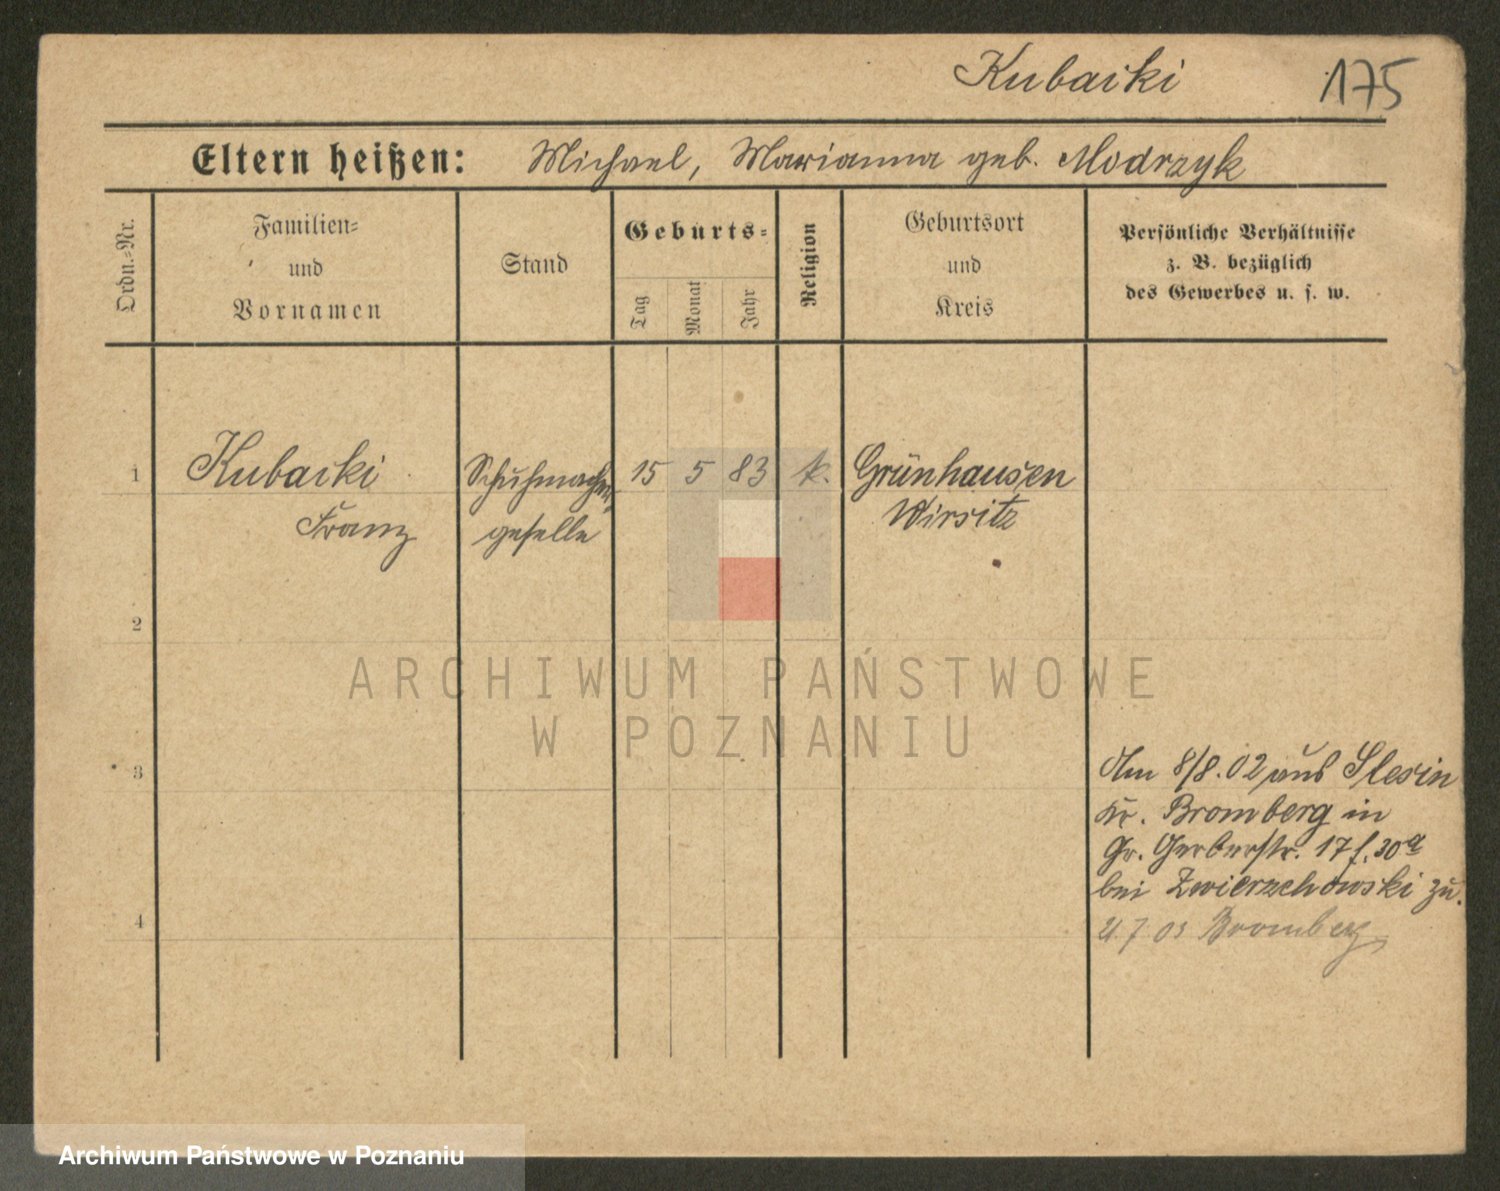 Kubacki
175
Eltern heißen: Michael, Marianna geb. Modrzyk
Ordn.-Nr.
Familien-
und
Vornamen
Stand
Geburts-
Tag
Monat
Jahr
Religion
Geburtsort
und
Kreis
Persönliche Verhältnisse
z. B. bezüglich
des Gewerbes u. s. w.
1 Kubacki Schuhmacher- 15 5 83 k. Grünhausen
Franz geselle Wirsitz
2
3
4
Am 8/8.02 aus Slesin
Kr. Bromberg in
Gr. Gerberstr. 17 f. 30a
bei Zwierzchowski zu.
21.7 03 Bromberg
ARCHIWUM PAŃSTWOWE
W POZNANIU
Archiwum Państwowe w Poznaniu